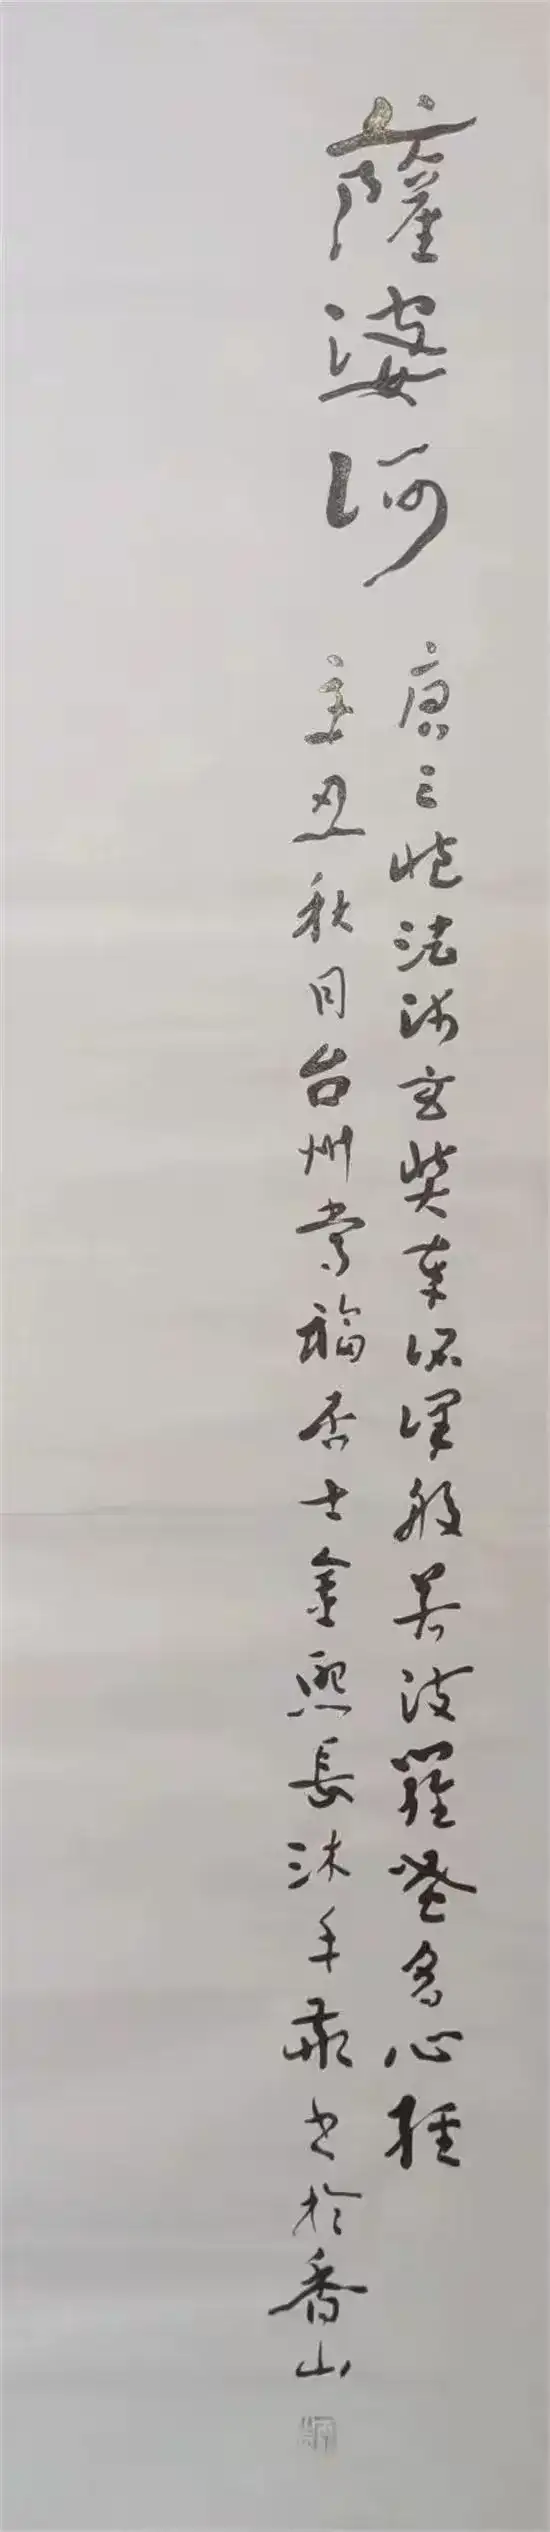 薩婆訶
唐三藏法師玄奘奉詔譯般若波羅蜜多心經
辛丑秋月台州常福居士金熙長沐手敬書於香山